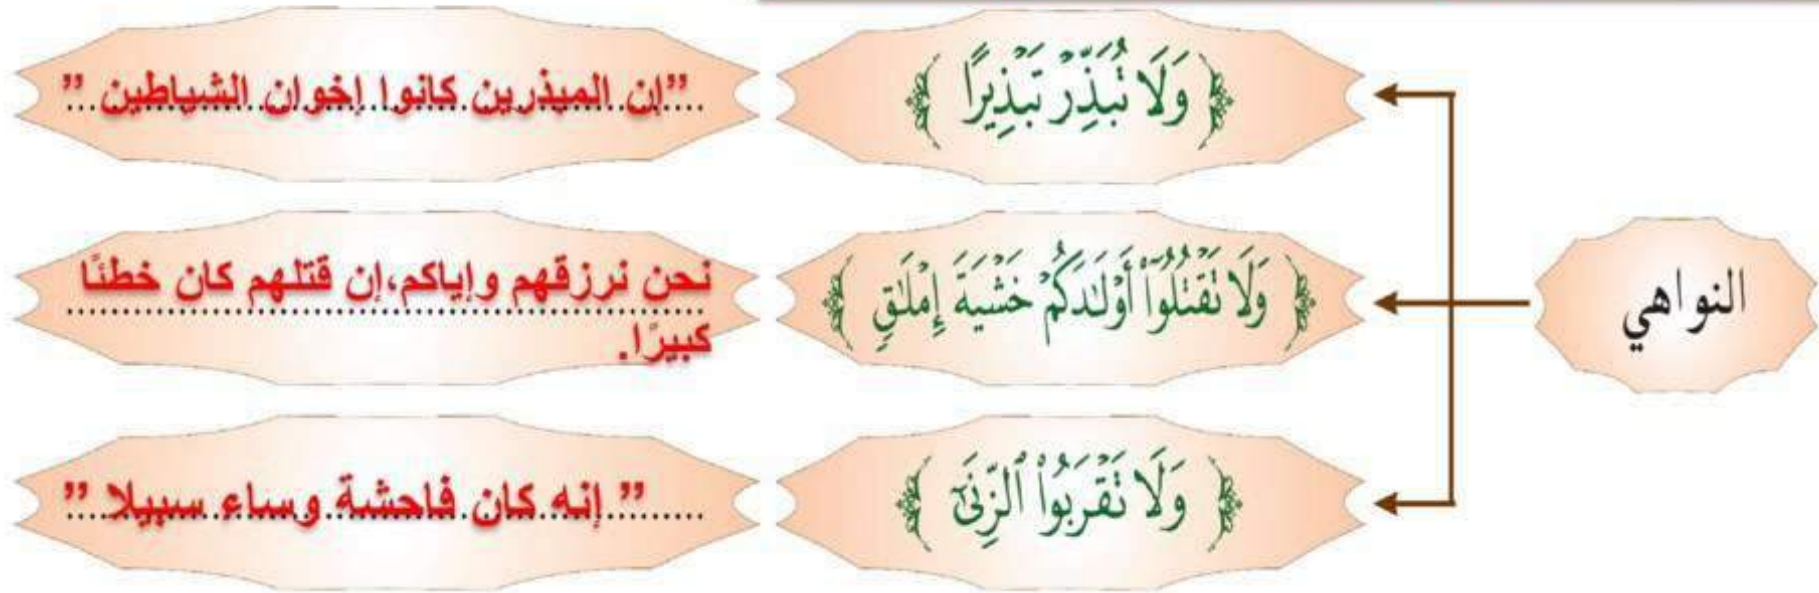 النواهي
﴿ وَلَا تُبَذِّرْ تَبْذِيرًا ﴾
”إن المبذرين كانوا إخوان الشياطين ”
﴿ وَلَا تَقْتُلُوٓا۟ أَوْلَٰدَكُمْ خَشْيَةَ إِمْلَٰقٍ ﴾
نحن نرزقهم وإياكم،إن قتلهم كان خطئًا
كبيرًا.
﴿ وَلَا تَقْرَبُوا۟ ٱلزِّنَىٰٓ ﴾
” إنه كان فاحشة وساء سبيلا ”